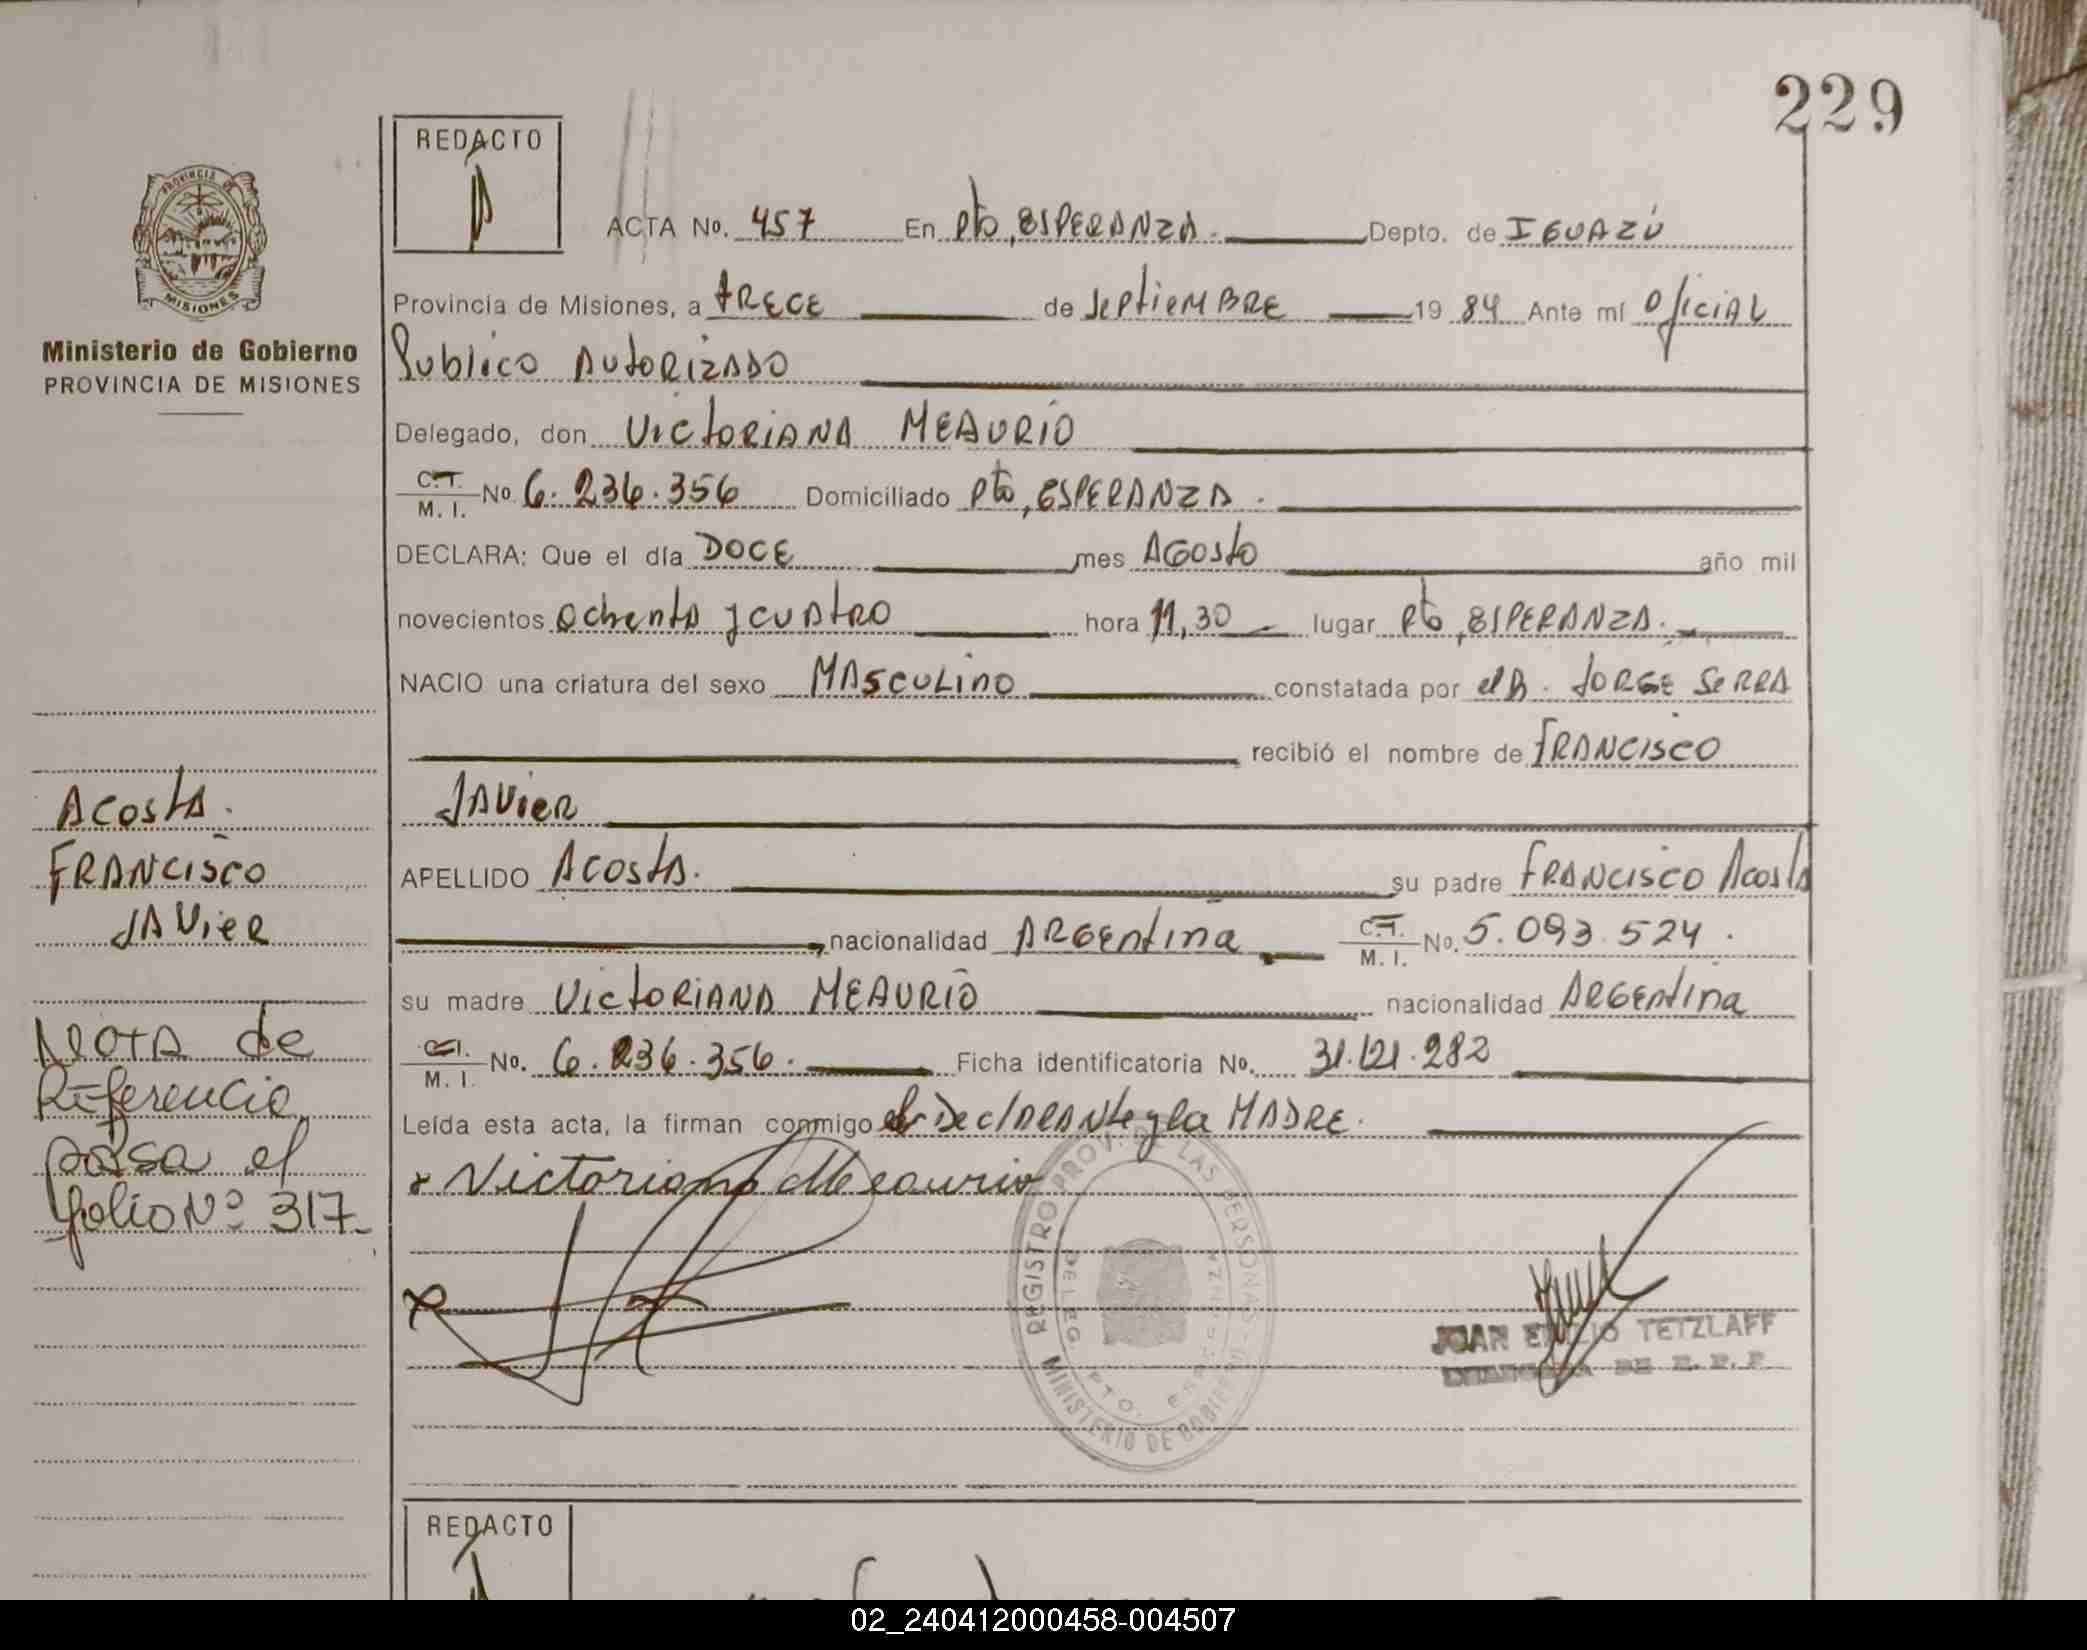 229
REDACTO
ACTA No. 457 En Pto, ESPERANZA. Depto. de IGUAZÚ
PROVINCIA DE MISIONES
Ministerio de Gobierno
PROVINCIA DE MISIONES
Provincia de Misiones, a trece de septiembre 1984 Ante mí Oficial
Publico Autorizado
Delegado, don Victoriana Meaurio
C.I. M. I. No. 6.236.356 Domiciliado Pto, ESPERANZA.
DECLARA: Que el día DOCE mes Agosto año mil
novecientos ochenta y cuatro hora 11,30 lugar Pto, ESPERANZA.
NACIO una criatura del sexo MASCULINO constatada por el Dr. Jorge Serra
recibió el nombre de Francisco
Javier
APELLIDO Acosta. su padre Francisco Acosta
nacionalidad Argentina C.I. M. I. No. 5.093.524.
su madre Victoriana Meaurio nacionalidad Argentina
C.I. M. I. No. 6.236.356. Ficha identificatoria No. 31.121.282
Leída esta acta, la firman conmigo el Declarante y la MADRE.
Victoriana Meaurio
Acosta.
Francisco
Javier
NOTA de
Referencia
pasa el
folio Nº 317
REGISTRO PROV. DE LAS PERSONAS
DELEG. PTO. ESPERANZA
MINISTERIO DE GOBIERNO
JUAN EMILIO TETZLAFF
REDACTO
02_240412000458-004507